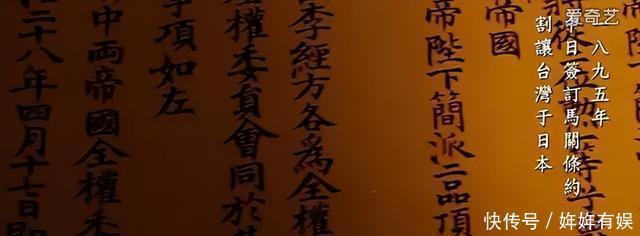 爱奇艺
八九五年
中日簽訂馬關條約
割讓台灣于日本
帝國
帝陛下簡派二品頂
李經方各爲全權
全權委員會同於
事項如左
中兩帝國全權委
二十八年四月十七日
快传号 / 姅姅有娱